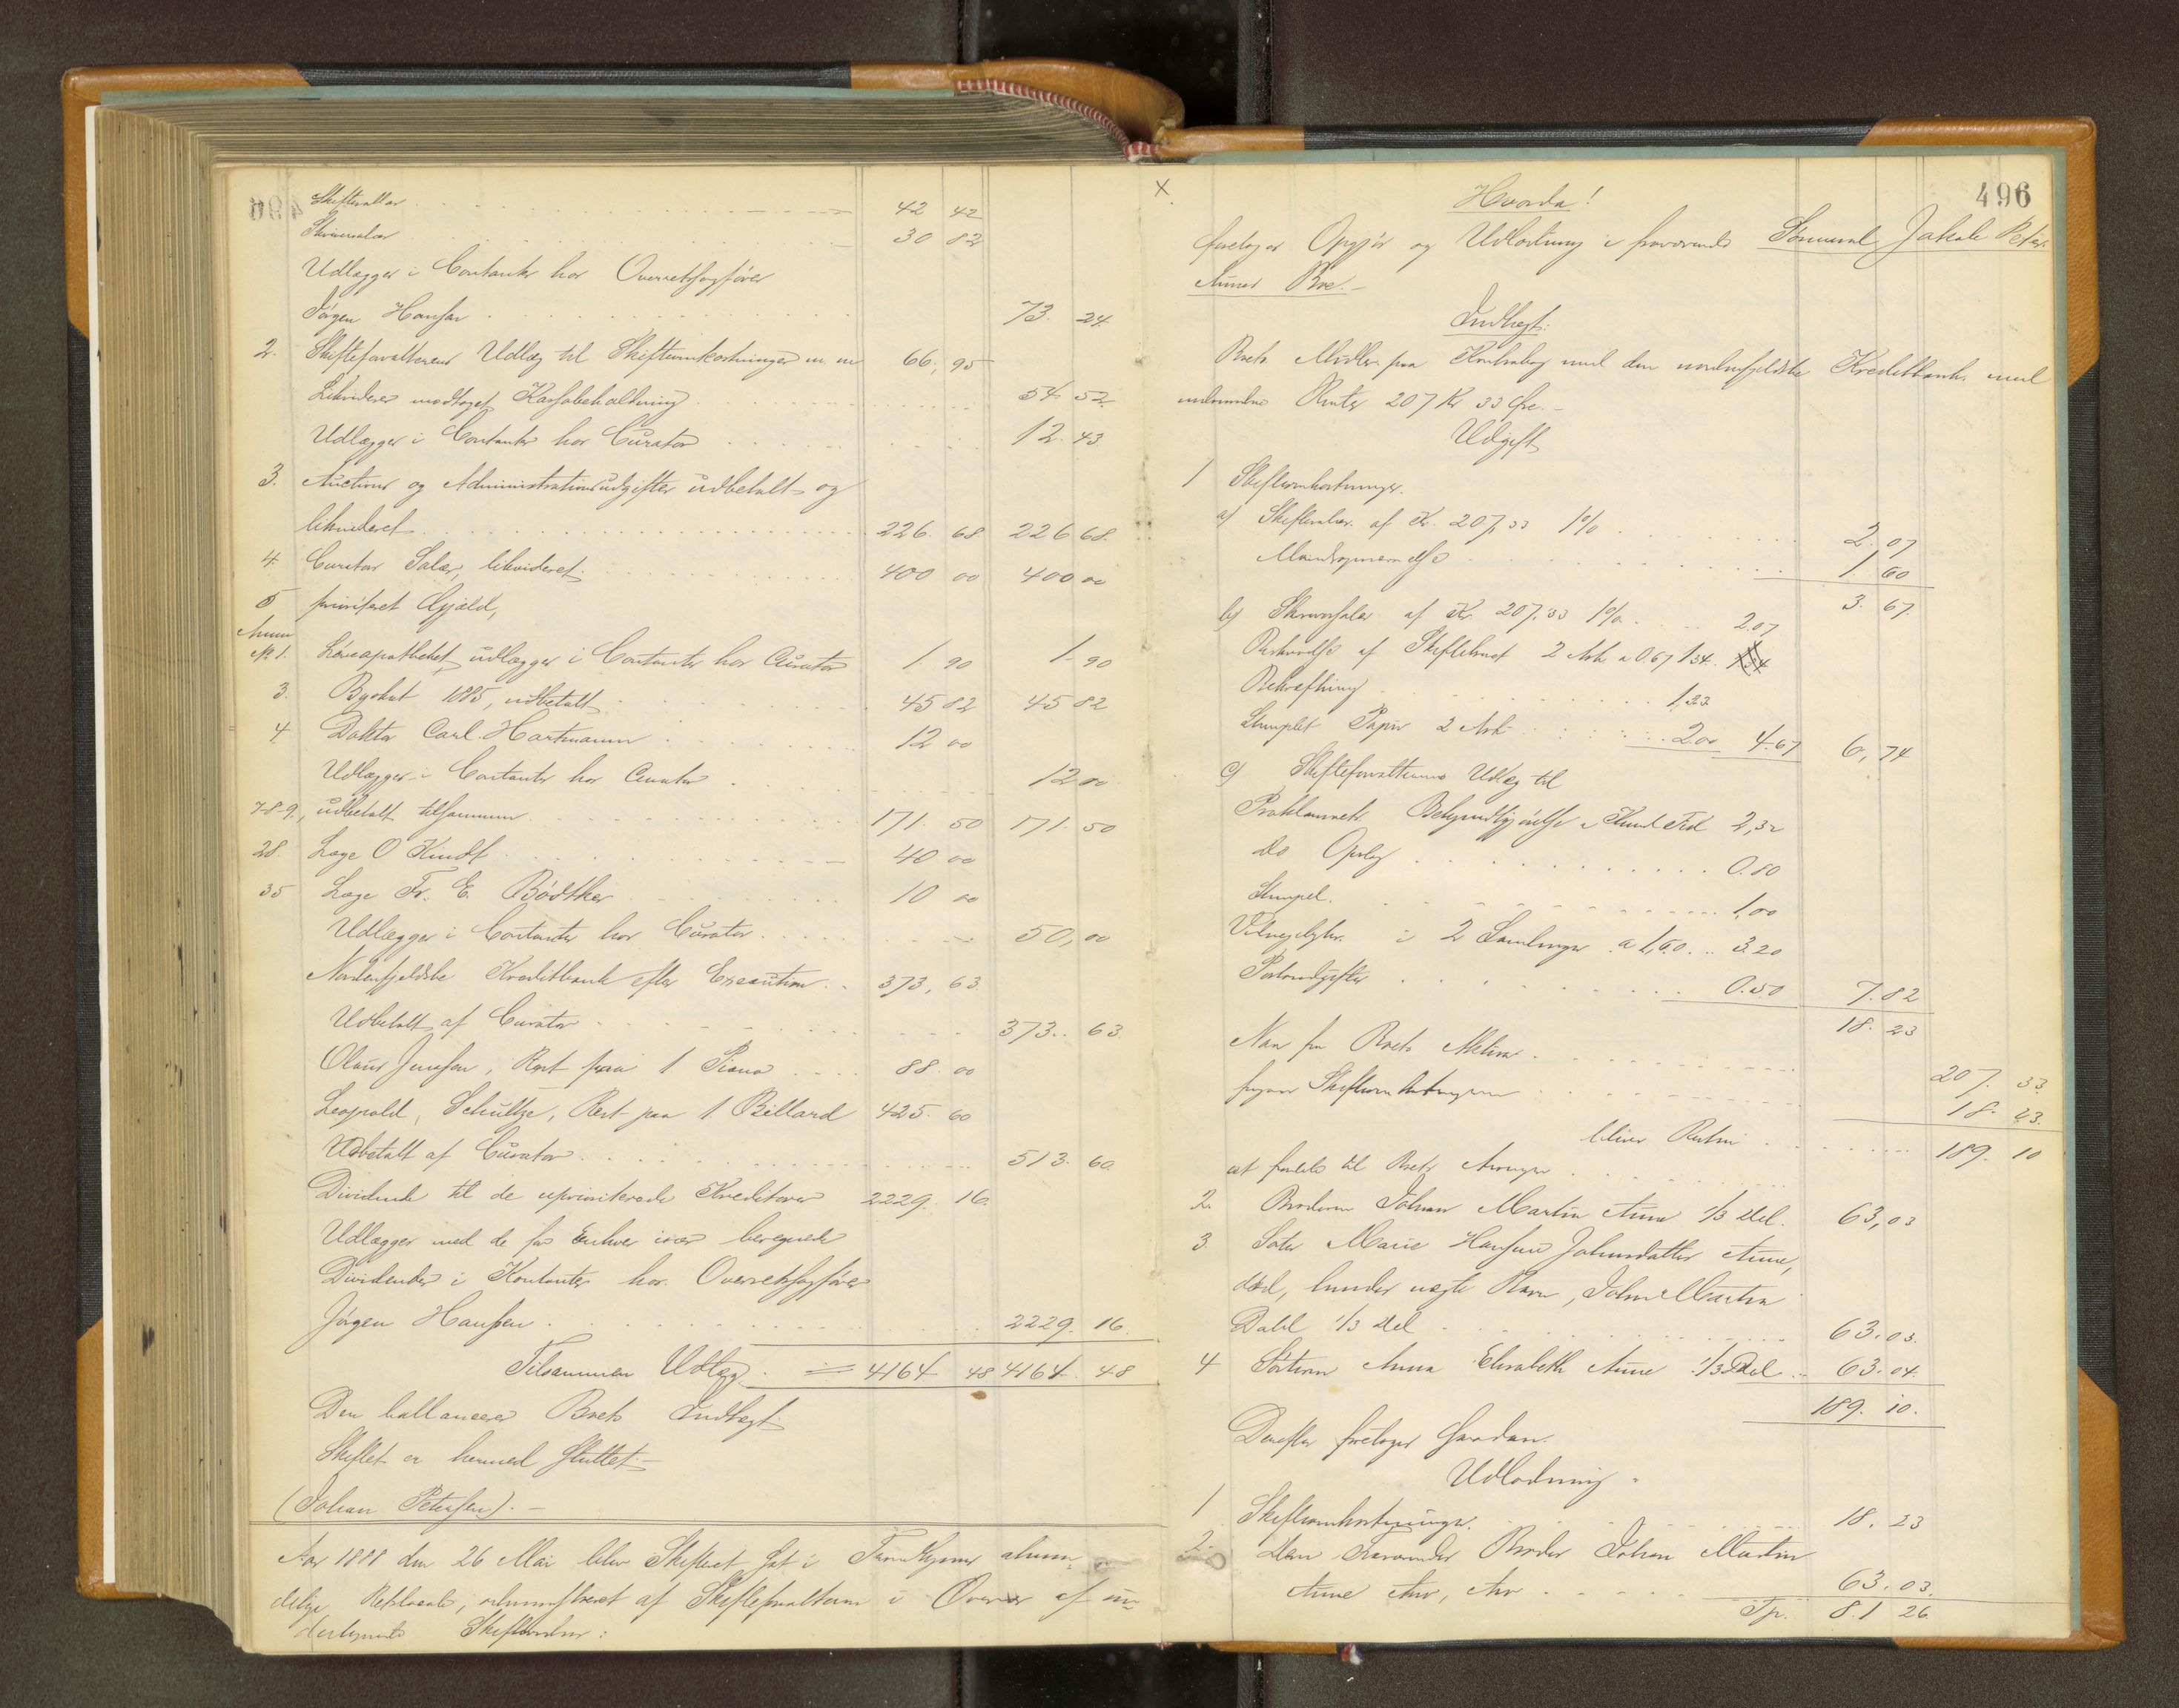 Skiftesallar 42 42
Skriversalær 30 82
Udlægges i Contanter hos Overretssagfører
Jørgen Hansen 73. 24.
2. Skifteforvalterens Udlæg til Skifteomkostninger m m 66, 95
Likvideres modtaget Kassabeholdning 54. 52.
Udlægges i Contanter hos Curator 12. 43
3. Auctions og Administrationsudgifter udbetalt og
likvideret 226. 68 226 68.
4. Curators Salær, likvideret 400 00 400 00
5 prioriteret Gjæld,
Anm
№ 1. Løveapotheket, udlægges i Contanter hos Curator 1. 90 1. 90
3. Byskat 1885, udbetalt 45 82 45 82
4. Doktor Carl Hartmann 12 00
Udlægges i Contanter hos Curator 12 00
7-8-9, udbetalt tilsammen 171. 50 171. 50
28. Læge O Kindt 40 00
35 Læge Fr. E. Bødtker 10 00
Udlægges i Contanter hos Curator 50, 00
Nordenfjeldske Kreditbank efter Execution 373, 63
Udbetalt af Curator 373. 63
Olaus Jenssen, Rest paa 1 Piano 88. 00
Leopold, Schultze, Rest paa 1 Billard 425. 60
Udbetalt af Curator 513. 60.
Dividende til de uprioriterede Kreditorer 2229. 16.
Udlægges med de for Enhver især beregnede
Dividender i Kontanter hos Overretssagfører
Jørgen Hanssen 2229. 16.
Tilsammen Udlæg 4164 48 4164. 48
Den ballancerer Boets Indtægt
Skiftet er hermed sluttet.
(Johan Petersen).
Aar 1888 den 26 Mai blev Skifteret sat i Trondhjems almin-
delige Retslokale, administreret af Skifteforvalteren i Overvær af un-
dertegnede Skiftevidner:
496
X
Hvorda!
foretoges Opgjør og Udlodning i fraværende Sømand Jakob Peter
Aunes Bo.
Indtægt:
Boets Midler paa Kontrabog med den nordenfjeldske Kreditbank med
Renter 207 Kr 33 Øre.
Udgift
1 Skifteomkostninger.
a) Skiftesalær af Kr. 207,33 1% 2. 07
1. 60
3. 67.
b) Skriversalær af Kr 207,33 1% 2.07
Beskrivelse af Skiftebrevet 2 Ark a 0.67 1.34.
Bekræftning 1,23
Stemplet Papir 2 Ark 2.00 4.67 6, 74
c) Skifteforvalterens Udlæg til
Proklamaets Bekjendtgjørelse i Kund Tid 2,32
do Opslag 0.80
Stempel. 1,00
i 2 Samlinger a 1,60 3.20
Portoudgifter 0.50 7. 82
18. 23
Naar fra Boets Aktiva 207. 33.
fragaar Skifteomkostningerne 18. 23.
bliver Resten 189. 10
at fordele til Boets Arvinger
2. Broderen Johan Martin Aune 1/3 Del. 63,03
3. Søster Marie Hansine Johnsdatter Aune,
død, hendes uægte Barn, John Martin
Dahl 1/3 Del 63. 03.
4 Søsteren Anna Elisabeth Aune 1/3 Del 63. 04.
189. 10.
Derefter foretoges saadan
Udlodning
1 Skifteomkostninger 18. 23
2. Den Fraværendes Broder Johan Martin
Aune Arv, 63. 03.
Tr. 81 26